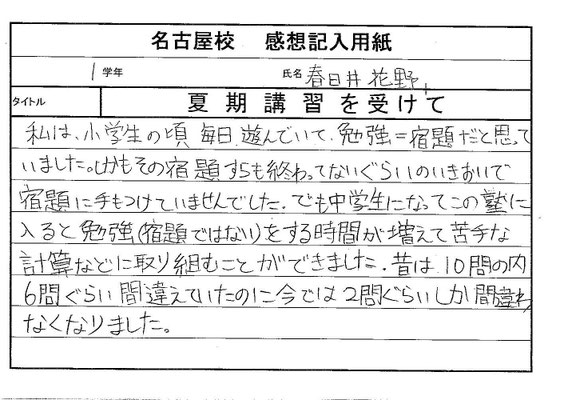 名古屋校 感想記入用紙
1 学年 氏名 春日井 花野
タイトル 夏期講習を受けて
私は、小学生の頃 毎日 遊んでいて、勉強=宿題だと思って
いました。しかもその宿題すらも終わってないぐらいのいきおいで
宿題に手もつけていませんでした。でも中学生になってこの塾に
入ると勉強(宿題ではない)をする時間が増えて苦手な
計算などに取り組むことができました。昔は、10問の内
6問ぐらい間違えていたのに今では2問ぐらいしか間違わ
なくなりました。